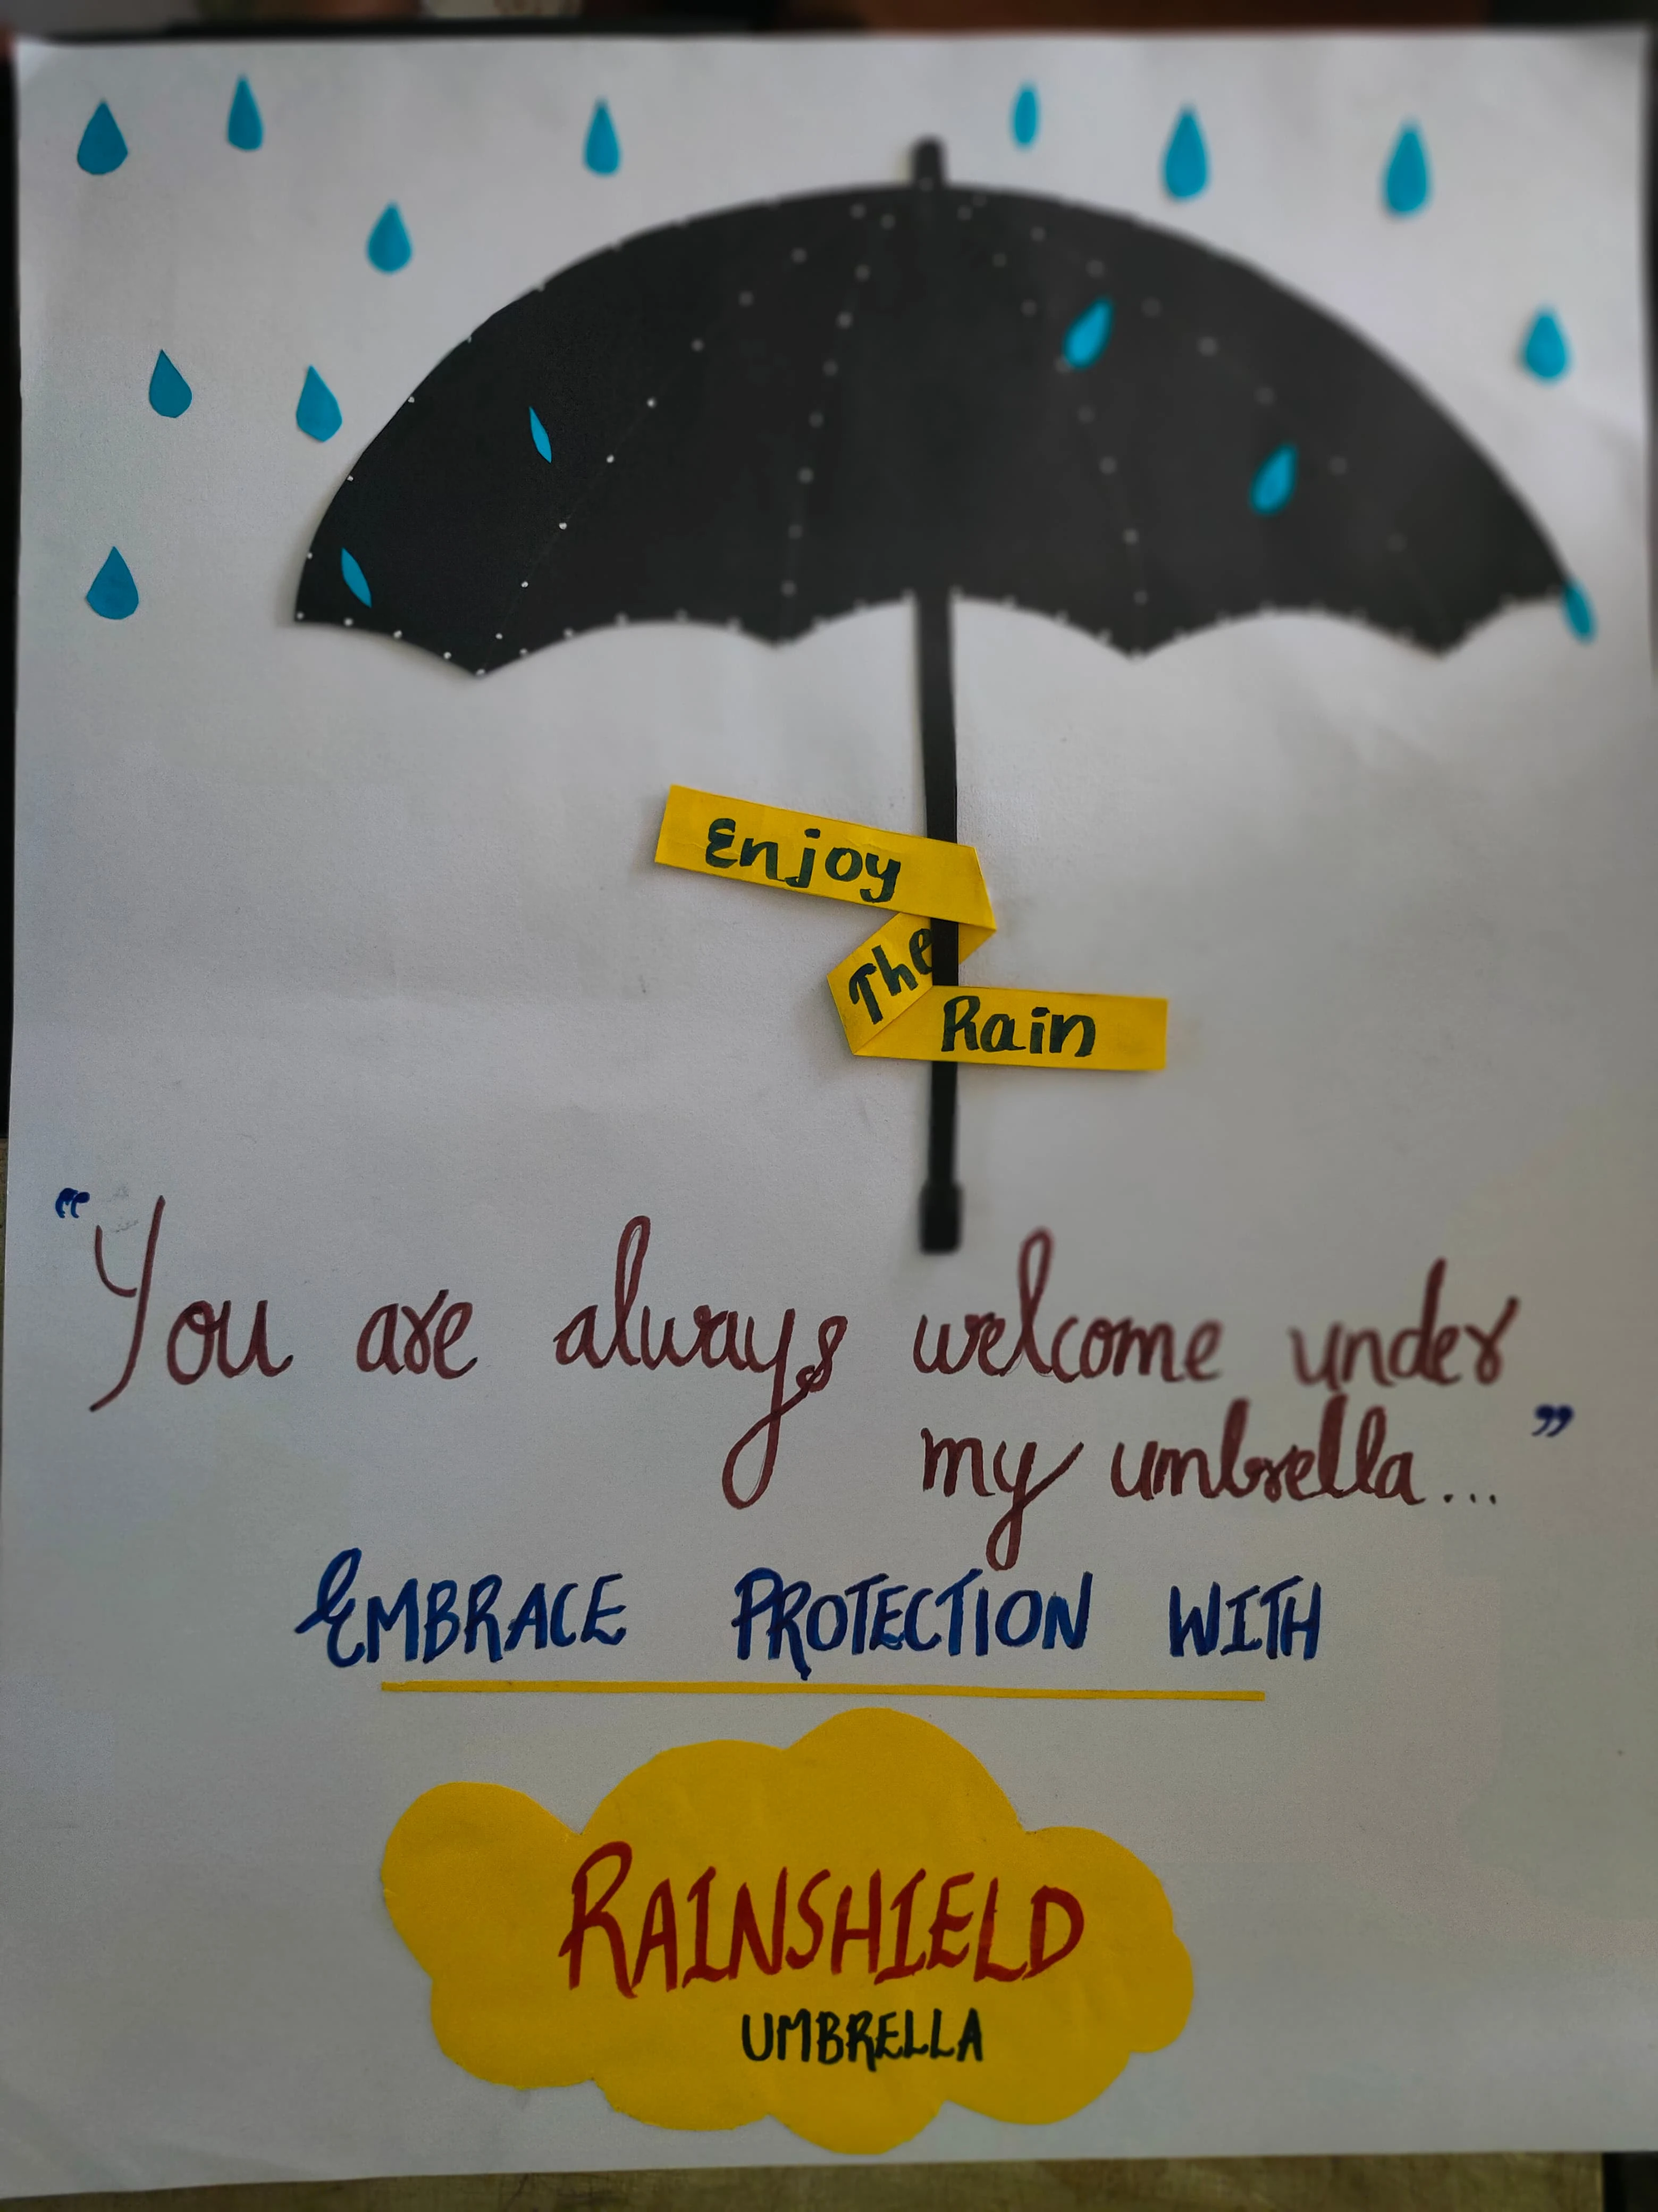 Enjoy
The
Rain
"You are always welcome under
my umbrella..."
EMBRACE PROTECTION WITH
RAINSHIELD
UMBRELLA